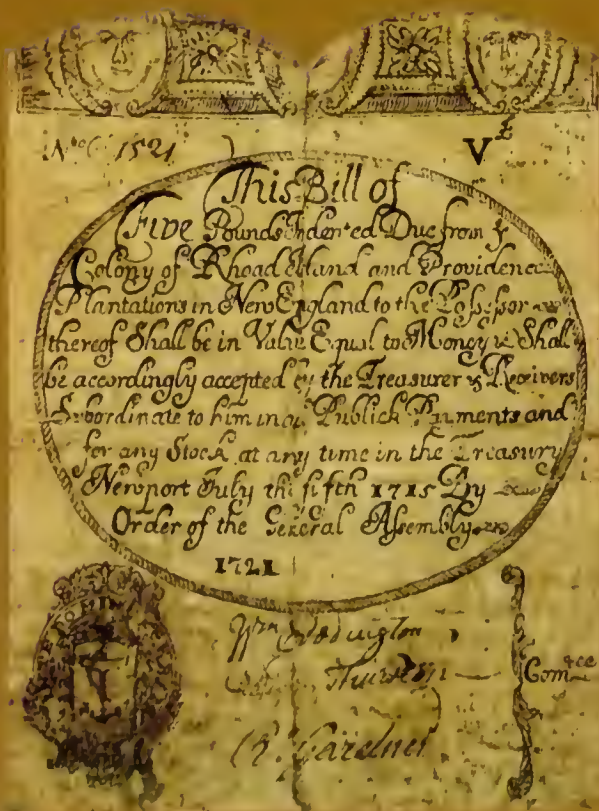 No 1521
V £
This Bill of
Five Pounds Indented Due from ye
Colony of Rhoad Island and Providence
Plantations in New England to the Possessor
thereof Shall be in Value Equal to Money & Shall
be accordingly accepted by the Treasurer & Receivers
Subordinate to him in all Publick Paiments and
for any Stock at any time in the Treasury
Newport July the fifth 1715 By
Order of the General Assembly
1721
Wm
Com tee